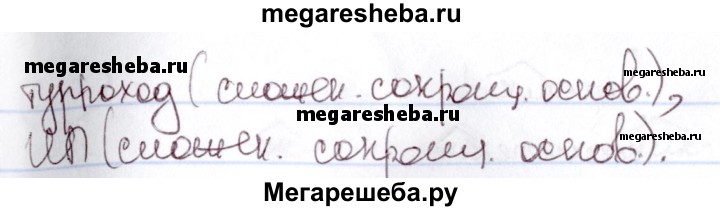 megaresheba.ru
megaresheba.ru
турпоход (сложен. сокращ. основ.),
megaresheba.ru
megaresheba.ru
megaresheba.ru
ИП (сложен. сокращ. основ.).
Мегарешеба.ру